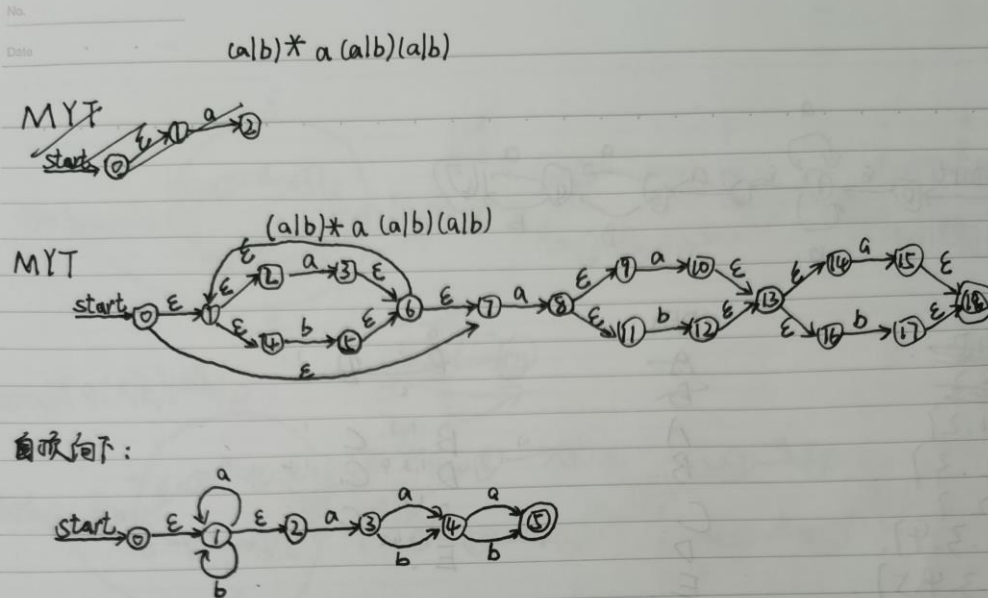 No.
Date
(a|b)* a (a|b)(a|b)
MYT
start 0 ε 1 a 2
(a|b)* a (a|b)(a|b)
MYT
start 0 ε 1 ε 2 a 3 ε ε 4 b 5 ε 6 ε ε ε 7 a 8 ε 9 a 10 ε ε 11 b 12 ε 13 ε 14 a 15 ε ε 16 b 17 ε 18
自顶向下:
start 0 ε 1 a b ε 2 a 3 a b 4 a b 5